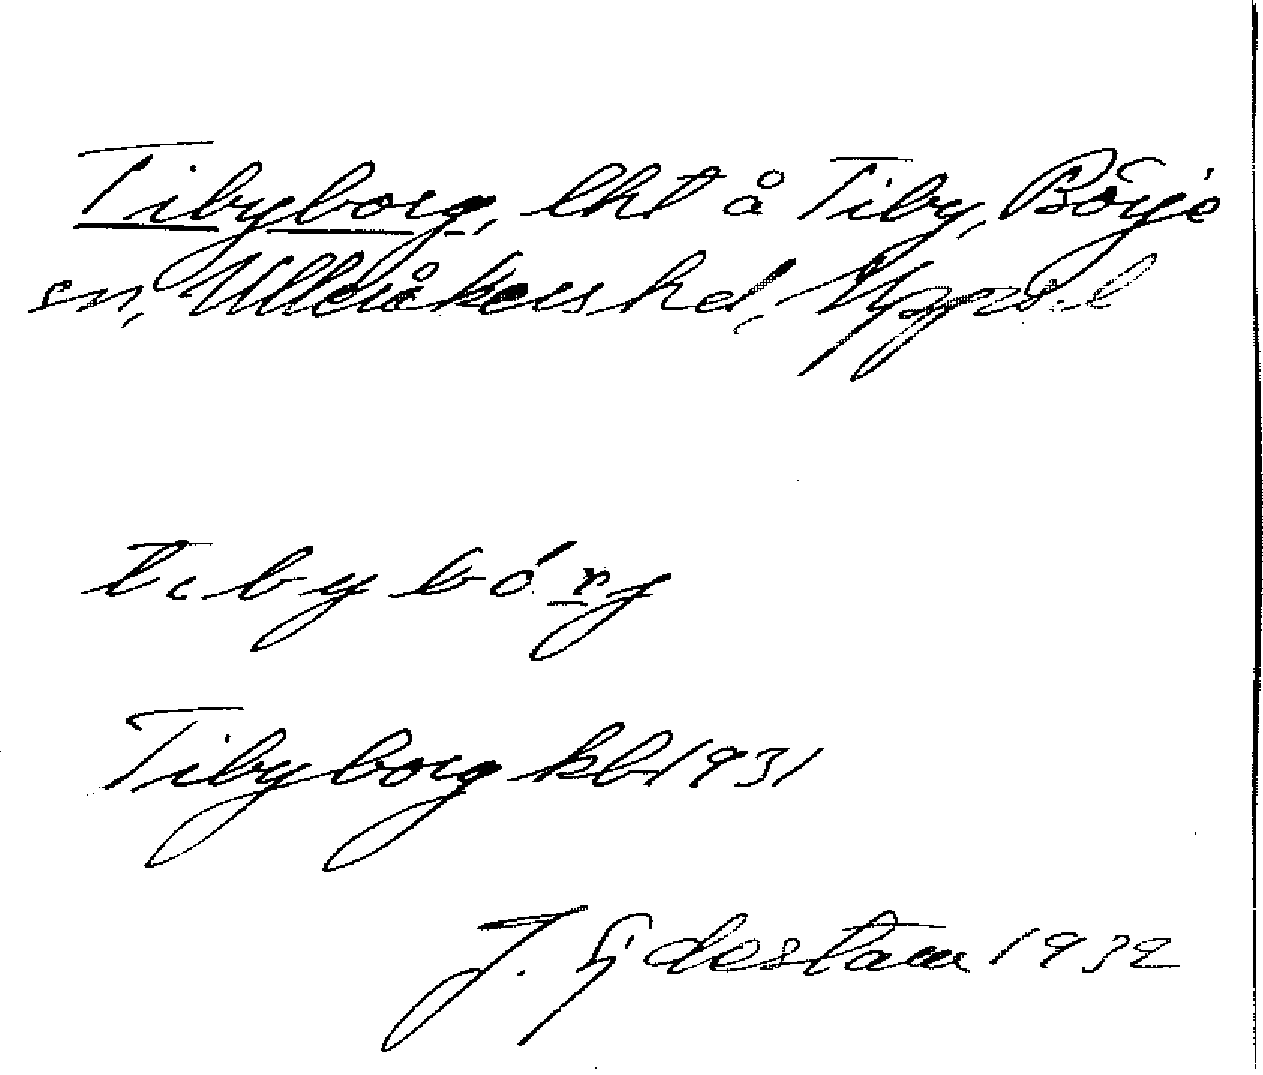 Tibyborg, lht å Tiby, Börje
sn, Ulleråkers hd, Upps. l
tɩbybórg
Tibyborg kb 1931
J. Sjdestam 1932